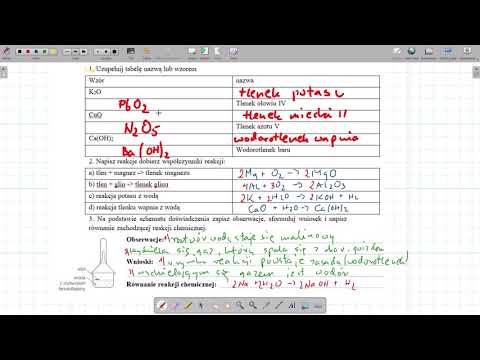 1. Uzupełnij tabelę nazwą lub wzorem
Wzór nazwa
K2O tlenek potasu
PbO2 Tlenek ołowiu IV
CuO tlenek miedzi II
N2O5 Tlenek azotu V
Ca(OH)2 wodorotlenek wapnia
Ba(OH)2 Wodorotlenek baru
2. Napisz reakcje dobierz współczynniki reakcji:
a) tlen + magnez –> tlenek magnezu 2Mg + O2 -> 2MgO
b) tlen + glin –> tlenek glinu 4Al + 3O2 -> 2Al2O3
c) reakcja potasu z wodą 2K + 2H2O -> 2KOH + H2
d) reakcja tlenku wapnia z wodą CaO + H2O -> Ca(OH)2
3. Na podstawie schematu doświadczenia zapisz obserwacje, sformułuj wniosek i napisz
równanie zachodzącej reakcji chemicznej.
Obserwacje: 1) roztwór wodą staje się malinowy
wydziela się gaz, który spala się z
Wnioski: 1) w wyniku reakcji powstaje zasada (wodorotlenek)
wydzielającym się gazem jest wodór
sód
woda
z roztworem
fenoloftaleiny
Równanie reakcji chemicznej: 2Na + 2H2O -> 2NaOH + H2